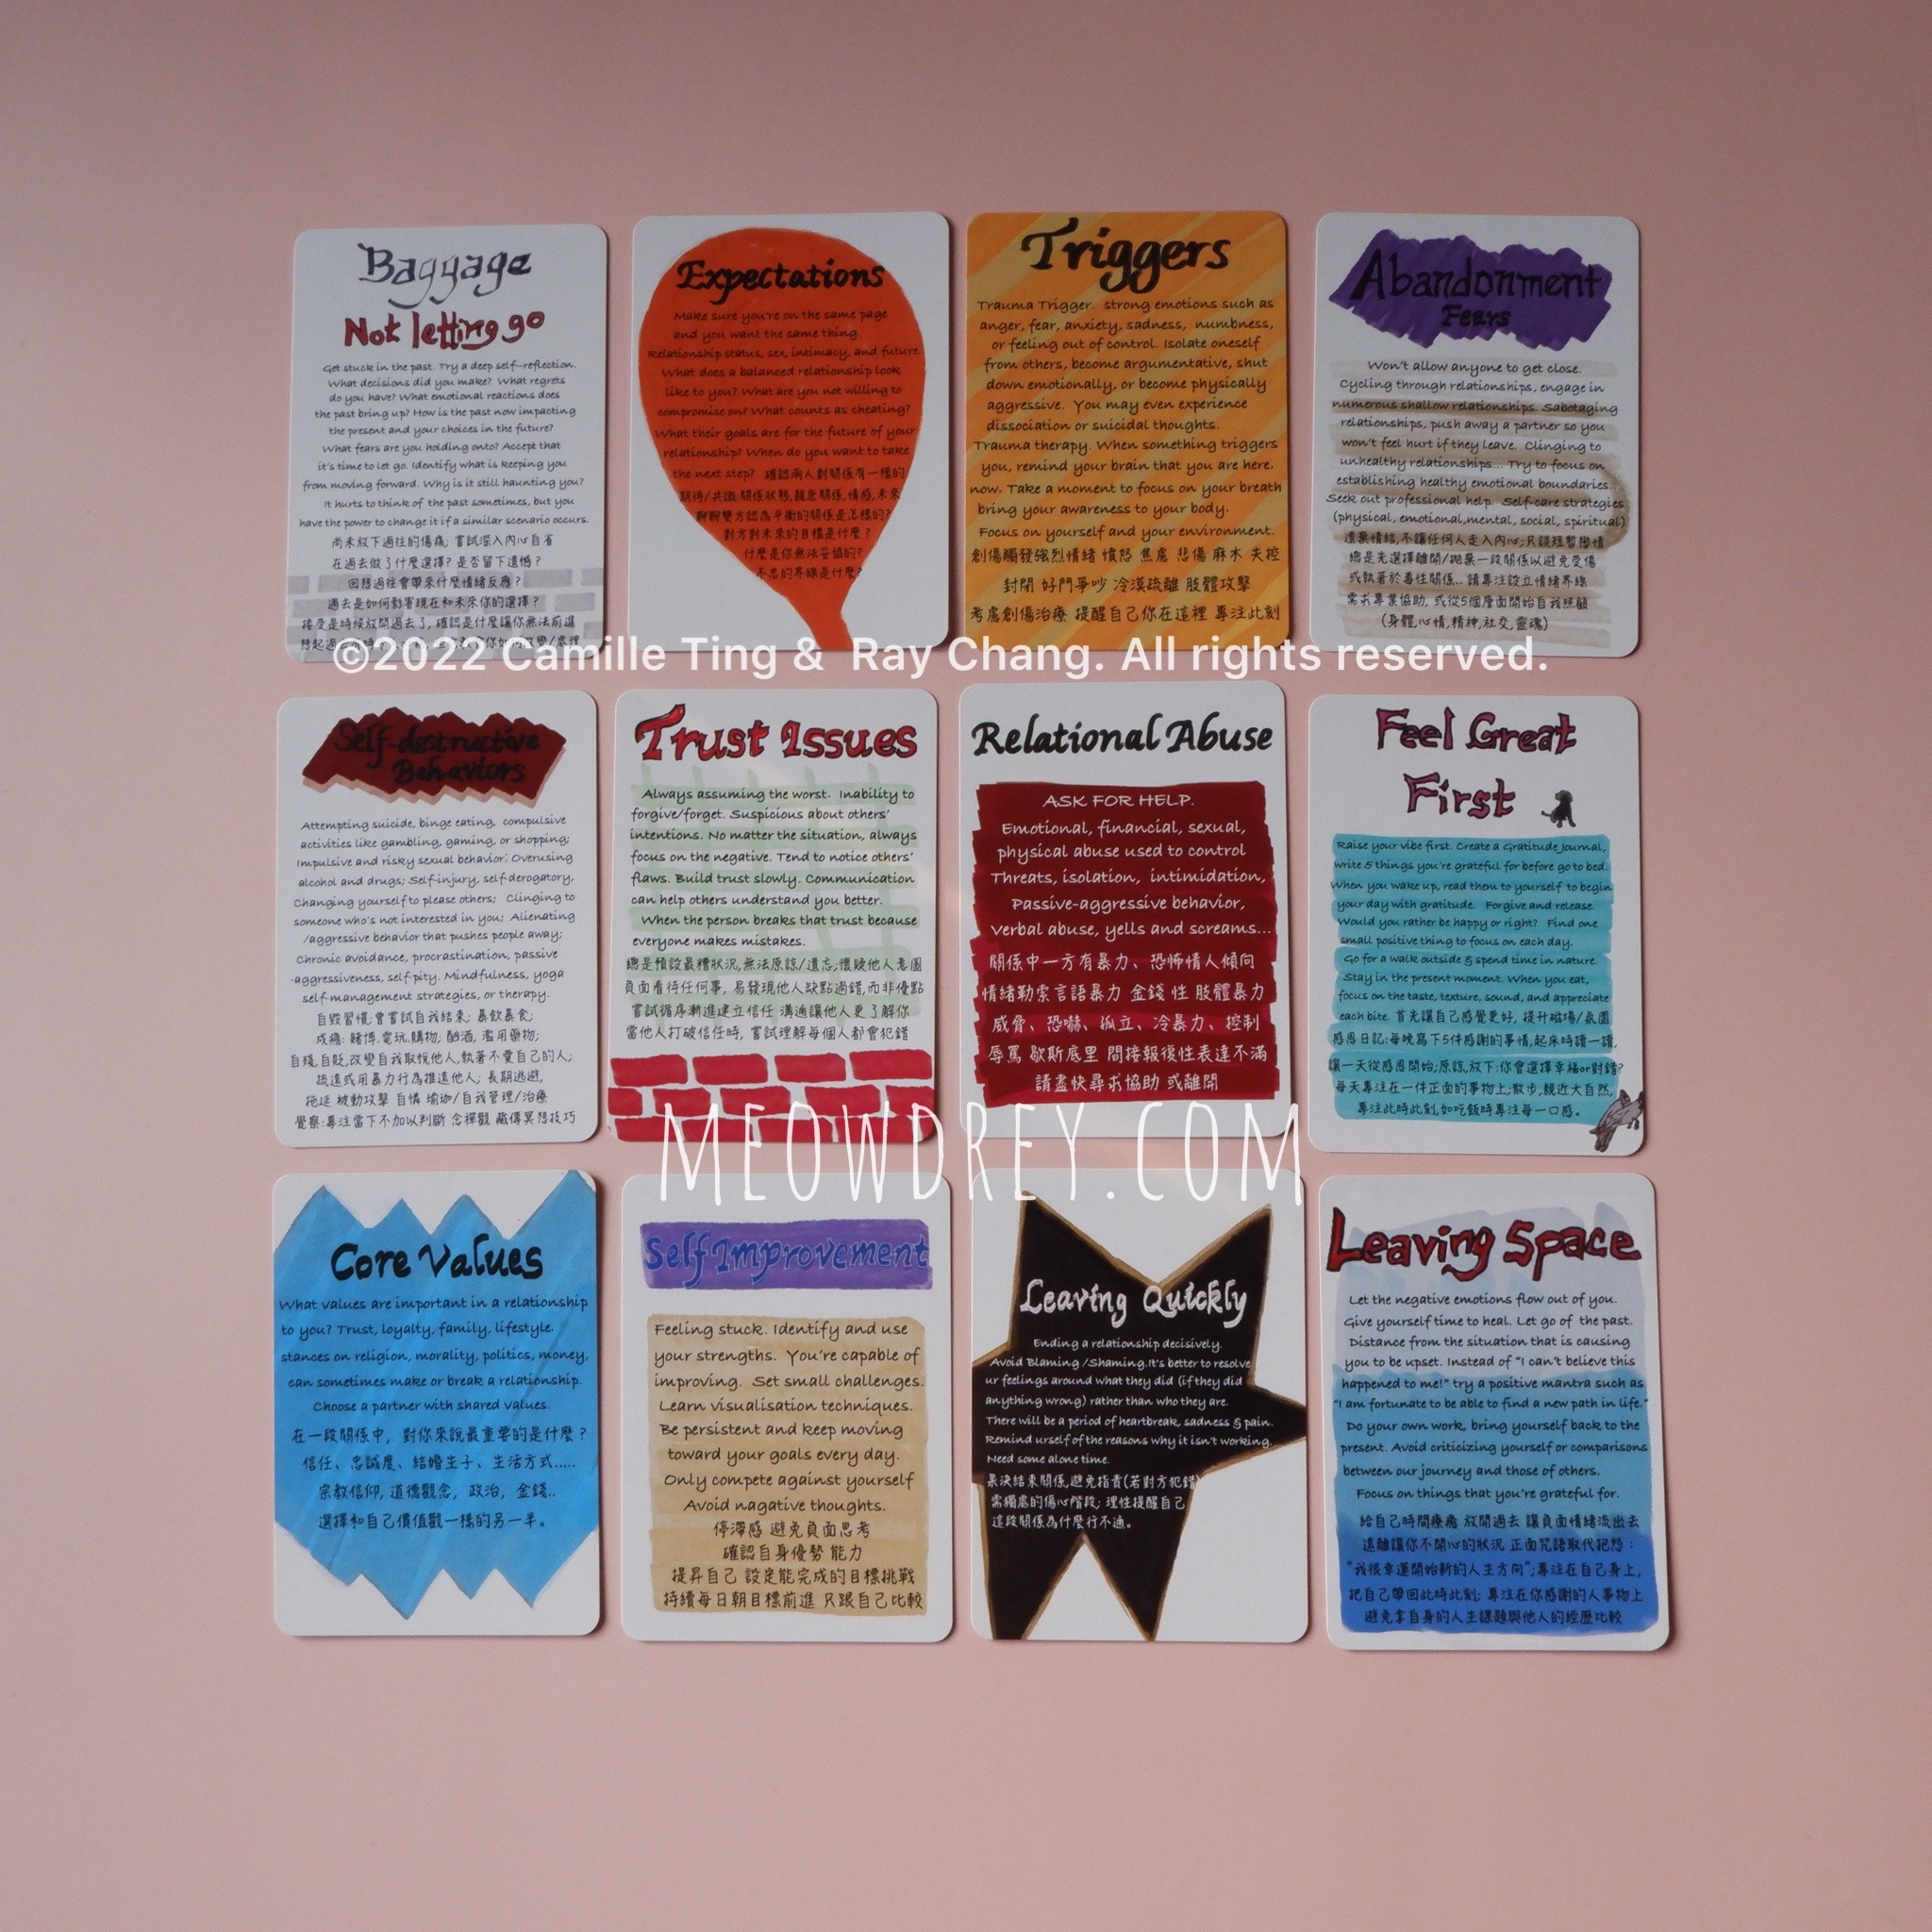 Baggage
Not letting go
Get stuck in the past. Try a deep self-reflection.
What decisions did you make? What regrets
do you have? What emotional reactions does
the past bring up? How is the past now impacting
the present and your choices in the future?
What fears are you holding onto? Accept that
it's time to let go. Identify what is keeping you
from moving forward. Why is it still haunting you?
It hurts to think of the past sometimes, but you
have the power to change it if a similar scenario occurs.
尚未放下過往的傷痛; 嘗試深入內心自省
在過去做了什麼選擇? 是否留下遺憾?
回想過往會帶來什麼情緒反應?
過去是如何影響現在和未來你的選擇?
接受是時候放開過去了, 確認是什麼讓你無法前進
Expectations
Make sure you're on the same page
and you want the same thing.
Relationship status, sex, intimacy, and future.
What does a balanced relationship look
like to you? What are you not willing to
compromise on? What counts as cheating?
What their goals are for the future of your
relationship? When do you want to take
the next step? 確認兩人對關係有一樣的
期待/共識:關係狀態,親密關係,情感,未來
聊聊雙方認為平衡的關係是怎樣的?
對方對未來的目標是什麼?
什麼是你無法妥協的?
不忠的界線是什麼?
Triggers
Trauma Trigger. strong emotions such as
anger, fear, anxiety, sadness, numbness,
or feeling out of control. Isolate oneself
from others, become argumentative, shut
down emotionally, or become physically
aggressive. You may even experience
dissociation or suicidal thoughts.
Trauma therapy. When something triggers
you, remind your brain that you are here,
now. Take a moment to focus on your breath
bring your awareness to your body.
Focus on yourself and your environment.
創傷觸發強烈情緒 憤怒 焦慮 悲傷 麻木 失控
封閉 好鬥爭吵 冷漠疏離 肢體攻擊
考慮創傷治療 提醒自己你在這裡 專注此刻
Abandonment
Fears
Won't allow anyone to get close.
Cycling through relationships, engage in
numerous shallow relationships. Sabotaging
relationships, push away a partner so you
won't feel hurt if they leave. Clinging to
unhealthy relationships... Try to focus on
establishing healthy emotional boundaries.
Seek out professional help. Self-care strategies
(physical, emotional,mental, social, spiritual)
遺棄情結,不讓任何人走入內心;只談短暫戀情
總是先選擇離開/拋棄一段關係以避免受傷
或執著於毒性關係.. 請專注設立情緒界線
需求專業協助, 或從5個層面開始自我照顧
(身體,心情,精神,社交,靈魂)
©2022 Camille Ting & Ray Chang. All rights reserved.
Self-destructive
Behaviors
Attempting suicide, binge eating, compulsive
activities like gambling, gaming, or shopping;
Impulsive and risky sexual behavior; Overusing
alcohol and drugs; Self-injury, self-derogatory,
Changing yourself to please others; Clinging to
someone who's not interested in you; Alienating
/aggressive behavior that pushes people away;
Chronic avoidance, procrastination, passive
-aggressiveness, self pity. Mindfulness, yoga
self-management strategies, or therapy.
自毀習慣:會嘗試自我結束; 暴飲暴食;
成癮: 賭博.電玩.購物; 酗酒, 濫用藥物;
自殘,自貶,改變自我取悅他人,執著不愛自己的人;
疏遠或用暴力行為推遠他人; 長期逃避,
拖延 被動攻擊 自憐 瑜珈/自我管理/治療
覺察:專注當下不加以判斷 念禪觀 藏傳冥想技巧
Trust Issues
Always assuming the worst. Inability to
forgive/forget. Suspicious about others'
intentions. No matter the situation, always
focus on the negative. Tend to notice others'
flaws. Build trust slowly. Communication
can help others understand you better.
When the person breaks that trust because
everyone makes mistakes.
總是預設最糟狀況,無法原諒/遺忘;懷疑他人意圖
負面看待任何事, 易發現他人缺點過錯,而非優點
嘗試循序漸進建立信任 溝通讓他人更了解你
當他人打破信任時, 嘗試理解每個人都會犯錯
Relational Abuse
ASK FOR HELP.
Emotional, financial, sexual,
physical abuse used to control
Threats, isolation, intimidation,
Passive-aggressive behavior,
Verbal abuse, yells and screams...
關係中一方有暴力、恐怖情人傾向
情緒勒索言語暴力 金錢 性 肢體暴力
威脅、恐嚇、孤立、冷暴力、控制
辱罵 歇斯底里 間接報復性表達不滿
請盡快尋求協助 或離開
Feel Great
First
Raise your vibe first. Create a Gratitude Journal,
write 5 things you're grateful for before go to bed.
When you wake up, read them to yourself to begin
your day with gratitude. Forgive and release.
Would you rather be happy or right? Find one
small positive thing to focus on each day.
Go for a walk outside & spend time in nature.
Stay in the present moment. When you eat,
focus on the taste, texture, sound, and appreciate
each bite. 首先讓自己感覺更好, 提升磁場/氛圍
感恩日記:每晚寫下5件感謝的事情,起床時讀一讀,
讓一天從感恩開始;原諒,放下:你會選擇幸福or對錯?
每天專注在一件正面的事物上;散步,親近大自然,
專注此時此刻,如吃飯時專注每一口感。
MEOWDREY.COM
Core Values
What values are important in a relationship
to you? Trust, loyalty, family, lifestyle,
stances on religion, morality, politics, money,
can sometimes make or break a relationship.
Choose a partner with shared values.
在一段關係中, 對你來說最重要的是什麼?
信任、忠誠度、結婚生子、生活方式.....
宗教信仰, 道德觀念, 政治, 金錢..
選擇和自己價值觀一樣的另一半。
Self Improvement
Feeling stuck. Identify and use
your strengths. You're capable of
improving. Set small challenges.
Learn visualisation techniques.
Be persistent and keep moving
toward your goals every day.
Only compete against yourself
Avoid nagative thoughts.
停滯感 避免負面思考
確認自身優勢 能力
提昇自己 設定能完成的目標挑戰
持續每日朝目標前進 只跟自己比較
Leaving Quickly
Ending a relationship decisively.
Avoid Blaming /Shaming.It's better to resolve
ur feelings around what they did (if they did
anything wrong) rather than who they are.
There will be a period of heartbreak, sadness & pain.
Remind urself of the reasons why it isn't working.
Need some alone time.
果決結束關係,避免指責(若對方犯錯)
需獨處的傷心階段; 理性提醒自己
這段關係為什麼行不通。
Leaving Space
Let the negative emotions flow out of you.
Give yourself time to heal. Let go of the past.
Distance from the situation that is causing
you to be upset. Instead of "I can't believe this
happened to me!" try a positive mantra such as
"I am fortunate to be able to find a new path in life."
Do your own work, bring yourself back to the
present. Avoid criticizing yourself or comparisons
between our journey and those of others.
Focus on things that you're grateful for.
給自己時間療癒 放開過去 讓負面情緒流出去
遠離讓你不開心的狀況 正面咒語取代抱怨:
"我很幸運開始新的人生方向";專注在自己身上,
把自己帶回此時此刻; 專注在你感謝的人事物上
避免拿自身的人生課題與他人的經歷比較